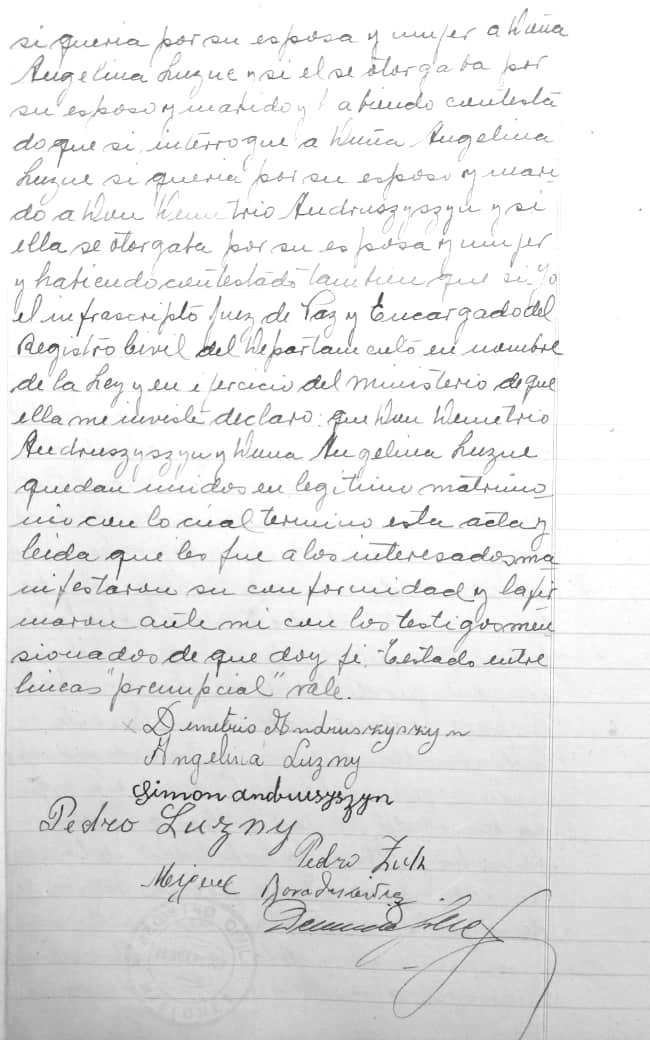 si queria por su esposa y mujer a Doña
Angelina Luzne y si el se otorgaba por
su esposo y marido y habiendo contesta
do que si, interrogue a Doña Angelina
Luzne si queria por su esposo y mari-
do a Don Demetrio Andruszyszyn y si
ella se otorgaba por su esposa y mujer
y habiendo contestado tambien que si. Yo
el infrascripto Juez de Paz y Encargado del
Registro Civil del Departamento en nombre
de la Ley y en ejercicio del ministerio de que
ella me inviste declaro: que Don Demetrio
Andruszyszyn y Doña Angelina Luzne
quedan unidos en legitimo matrimo
nio con lo cual termino esta acta y
leida que les fue a los interesados ma
nifestaron su conformidad y la fir
maron ante mi con los testigos men
sionados de que doy fé. Testado entre
lineas "prenupcial" vale.
x Demetrio Andruszyszyn
Angelina Luzny
Simon andruszyszyn
Pedro Luzny
Pedro